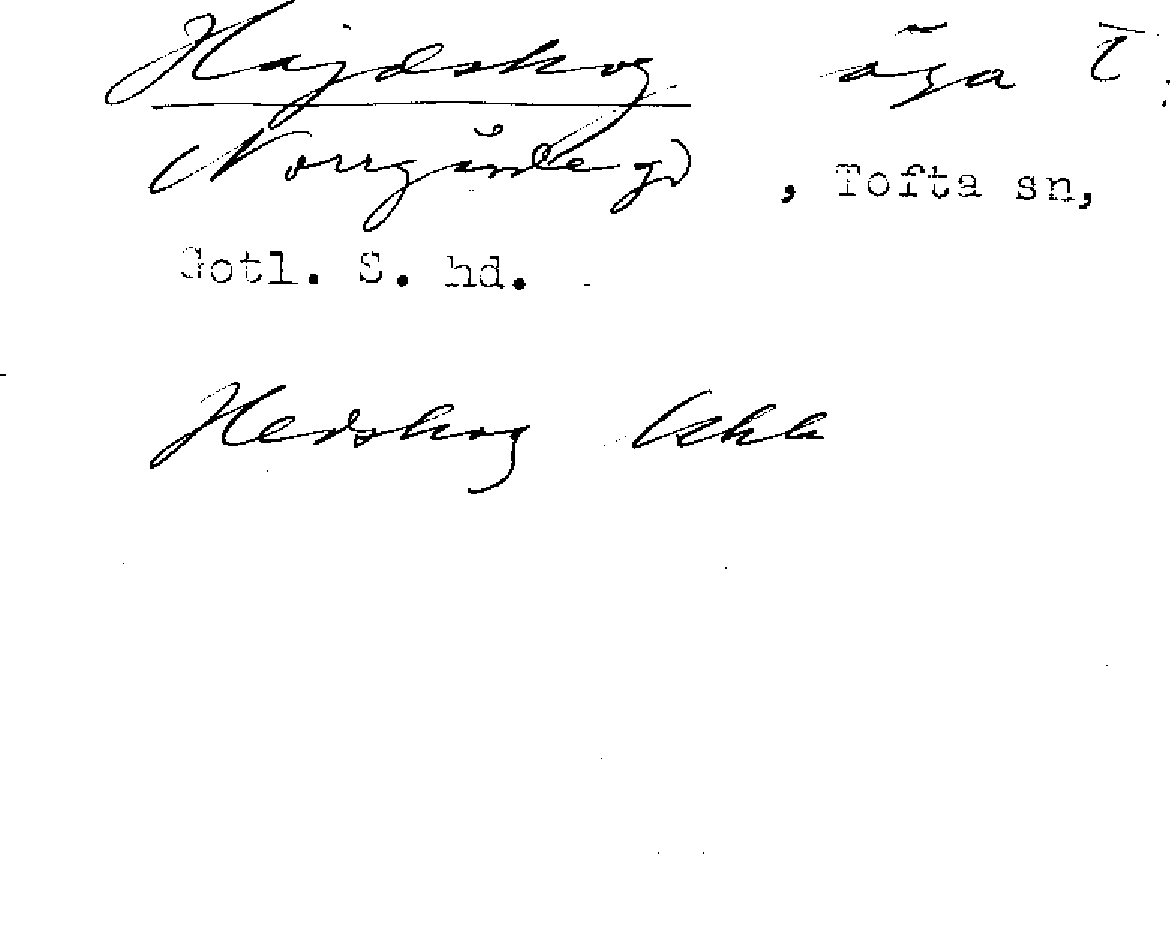 Hajdskog äga t.
Norrgårde gd , Tofta sn,
Gotl. S. hd.
Hedskog